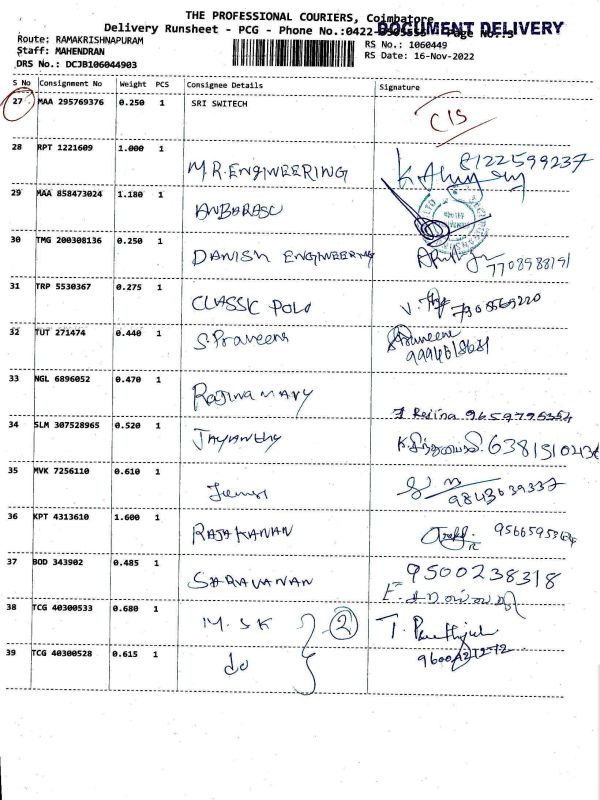 THE PROFESSIONAL COURIERS, Coimbatore
DOCUMENT DELIVERY
Delivery Runsheet - PCG - Phone No.:0422-
Route: RAMAKRISHNAPURAM
RS No.: 1060449
Staff: MAHENDRAN
RS Date: 16-Nov-2022
DRS No.: DCJB106044903
S No Consignment No Weight PCS Consignee Details Signature
27 MAA 295769376 0.250 1 SRI SWITECH CIS
28 RPT 1221609 1.000 1 M.R.ENGINEERING 8122599237
29 MAA 858473024 1.180 1 ANBARASU
30 TMG 200308136 0.250 1 DANISH ENGINEERING
31 TRP 5530367 0.275 1 CLASSIC POLO
32 TUT 271474 0.440 1 S.Praveena
33 NGL 6896052 0.470 1 Rajina MARY
34 SLM 307528965 0.520 1 JAYANTHY
35 MVK 7256110 0.610 1 9843639337
36 KPT 4313610 1.600 1 RAJAKANAN
37 BOD 343902 0.485 1 SARAVANAN 9500238318
38 TCG 40300533 0.680 1 M.SK 2
39 TCG 40300528 0.615 1 do